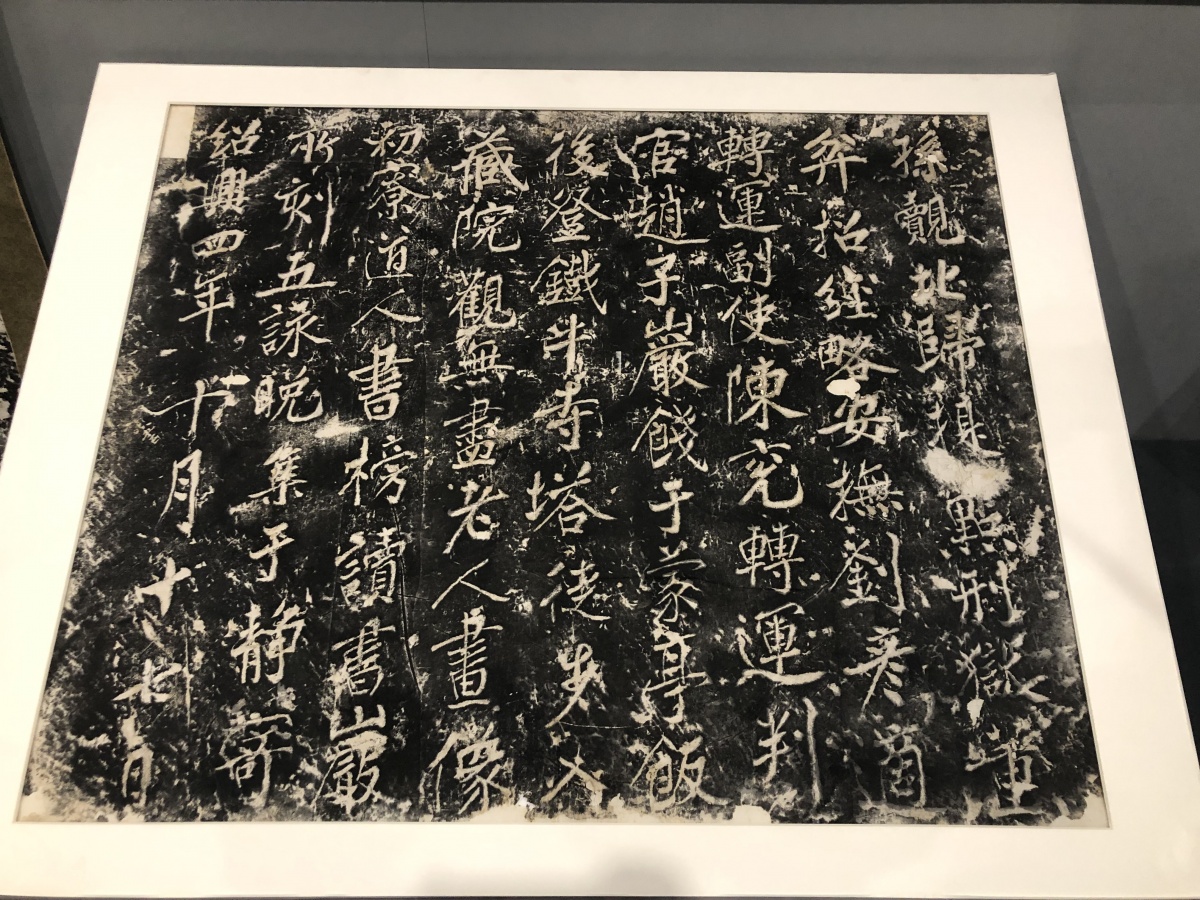 孫覿北歸提點刑獄董
弅招經略安撫劉彥適
轉運副使陳兗轉運判
官趙子巖餞于蒙亭飯
後登鐵牛寺塔徒步入
藏院觀無盡老人畫像
初寮道人書榜讀書巖
所刻五詠晚集于靜寄
紹興四年十月十七日